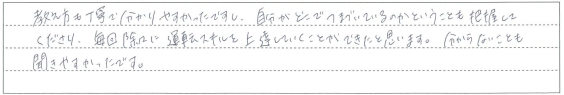 教え方も丁寧で分かりやすかったですし、自分がどこでつまづいているのかということも把握して
くださり、毎回除々に運転スキルを上達していくことができたと思います。分からないことも
聞きやすかったです。